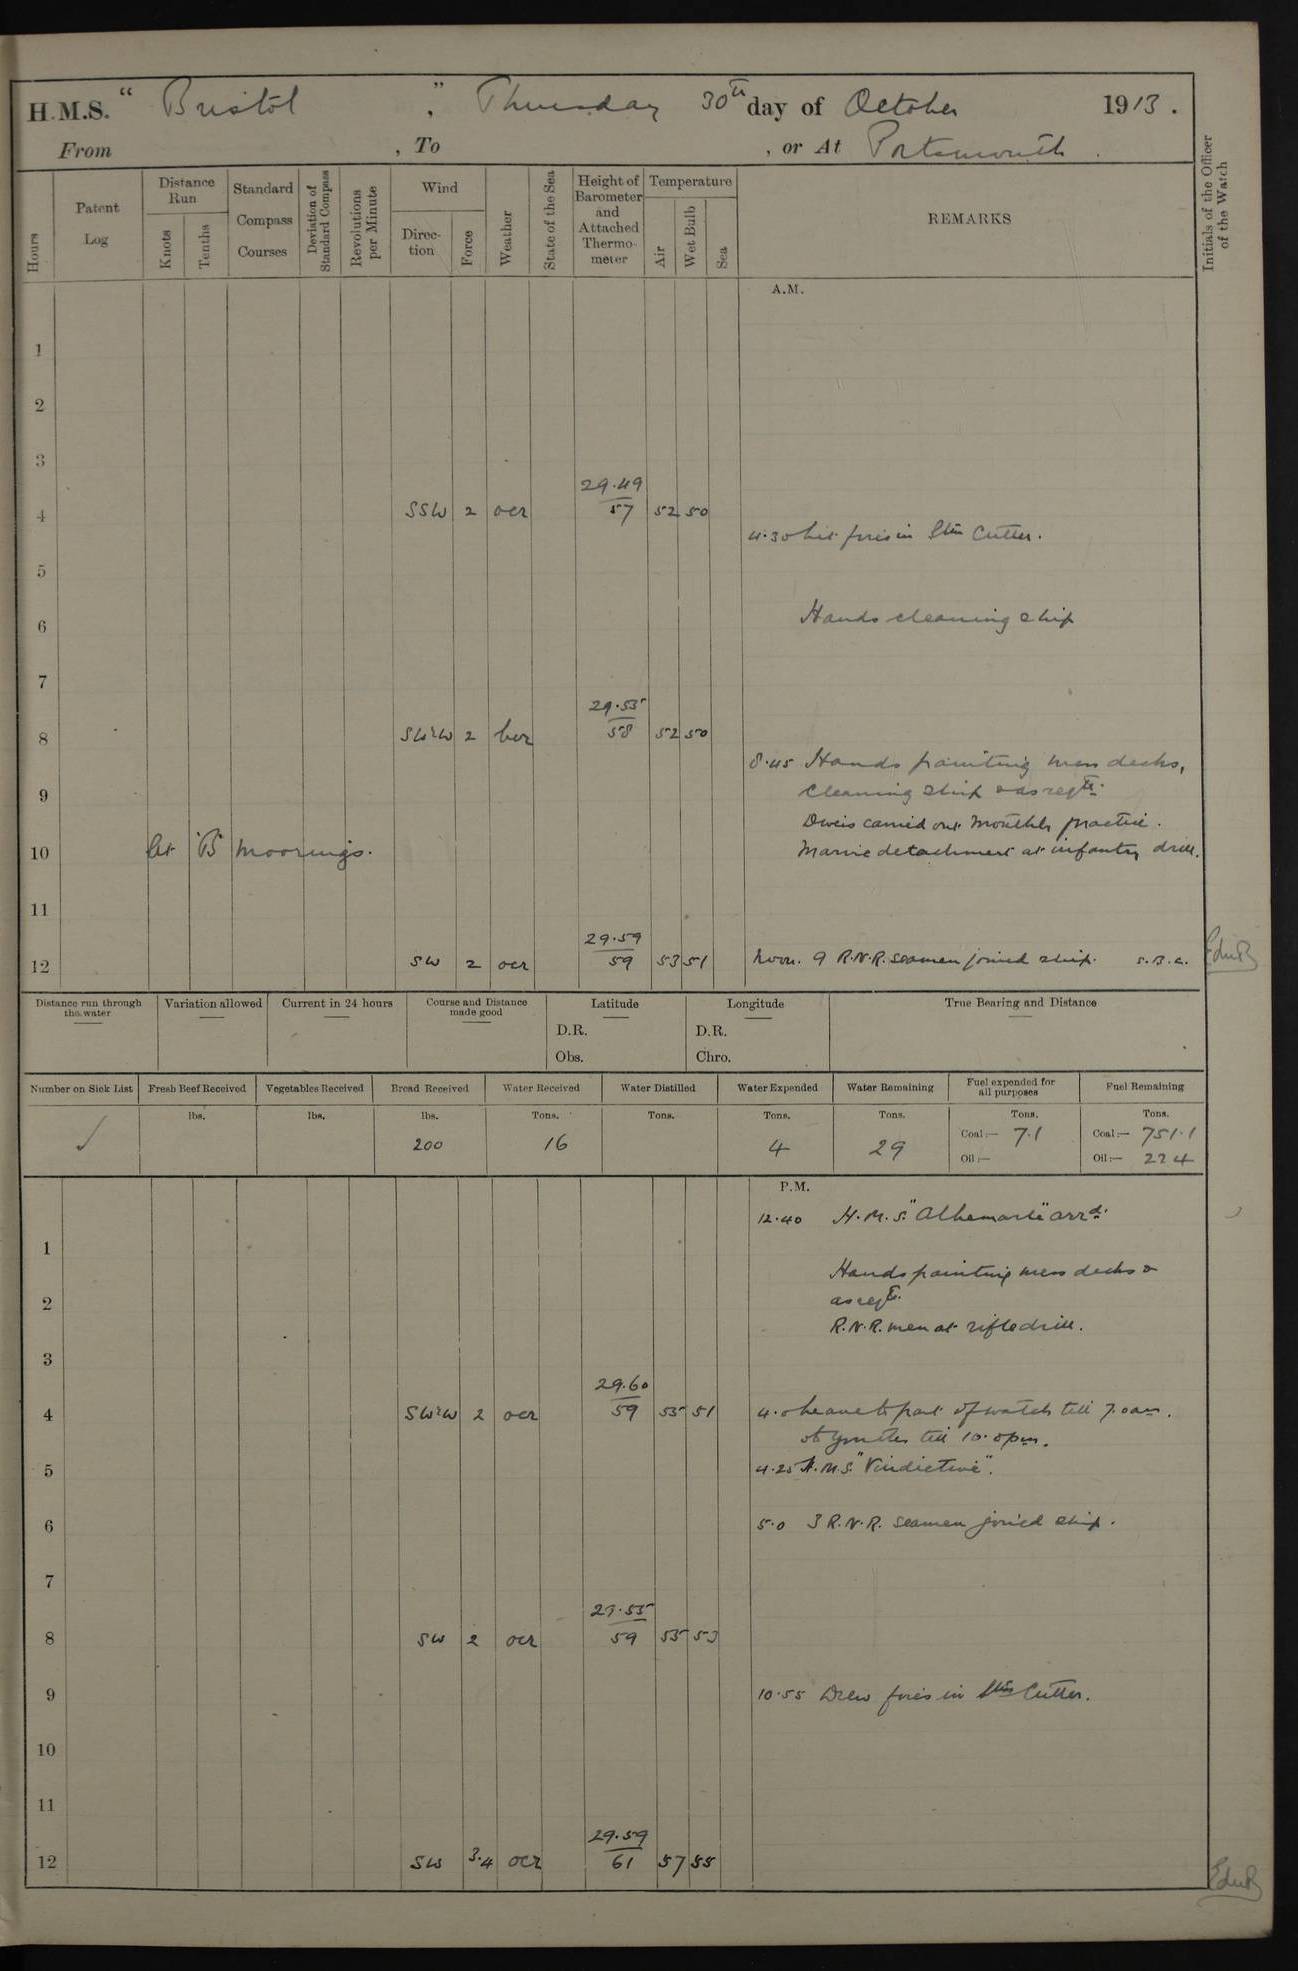 H.M.S. "Bristol", Thursday 30th day of October 1913.
From , To , or At Portsmouth.
Hours
Patent Log
Distance Run
Knots
Tenths
Standard Compass Courses
Deviation of Standard Compass
Revolutions per Minute
Wind
Direction
Force
Weather
State of the Sea
Height of Barometer and Attached Thermometer
Temperature
Air
Wet Bulb
Sea
REMARKS
Initials of the Officer of the Watch
A.M.
1
2
3
29.49
4 SSW 2 ocr 57 52 50
4.30 Lit fires in Stm Cutter.
5
6 Hands cleaning ship
7
29.55
8 SW'W 2 bcr 58 52 50
8.45 Hands painting mess decks,
9 cleaning ship & as reqte.
carried out monthly practice.
10 At 'B' moorings. Marine detachment at infantry drill.
11
29.59
12 SW 2 ocr 59 53 51 Noon. 9 R.N.R. seamen joined ship.
Distance run through the water
Variation allowed
Current in 24 hours
Course and Distance made good
Latitude
D.R.
Obs.
Longitude
D.R.
Chro.
True Bearing and Distance
Number on Sick List
Fresh Beef Received
Vegetables Received
Bread Received
Water Received
Water Distilled
Water Expended
Water Remaining
Fuel expended for all purposes
Fuel Remaining
lbs. lbs. lbs. Tons. Tons. Tons. Tons. Tons. Tons.
✓ 200 16 4 29 Coal:— 7.1 Coal:— 751.1
Oil:— Oil:— 224
P.M.
12.40 H.M.S. "Albemarle" arrd.
1
Hands painting mess decks &
2 as reqte.
R.N.R. men at rifle drill.
3
29.60
4 SW'W 2 ocr 59 55 51 4.0 leave to part of watch till 7.0 am.
till 10.0 pm.
5 4.25 H.M.S. "Vindictive".
6 5.0 3 R.N.R. seamen joined ship.
7
29.55
8 SW 2 ocr 59 55 53
9 10.55 Drew fires in Stm Cutter.
10
11
29.59
12 SW 3.4 ocr 61 57 55